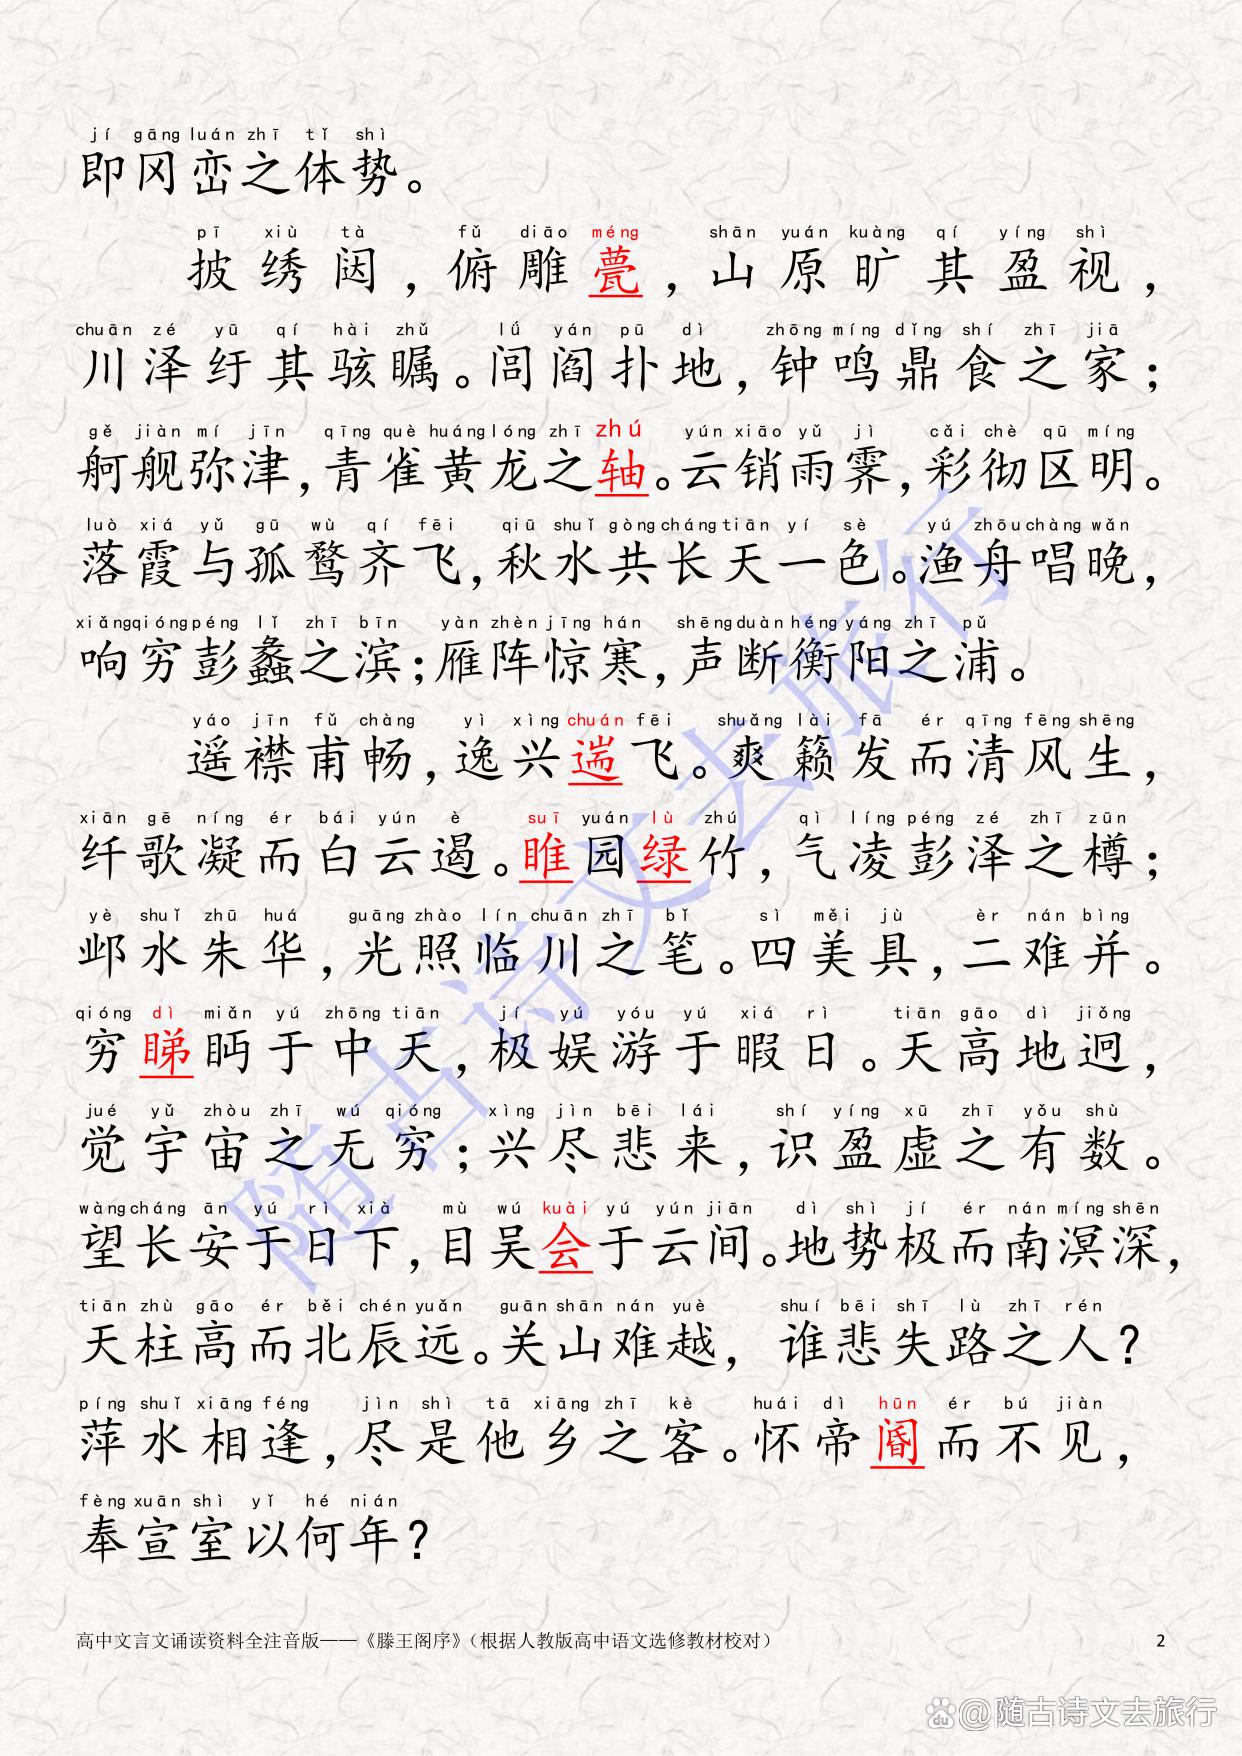 jí gāng luán zhī tǐ shì
即冈峦之体势。
pī xiù tà fǔ diāo méng shān yuán kuàng qí yíng shì
披绣闼，俯雕甍，山原旷其盈视，
chuān zé yū qí hài zhǔ lǘ yán pū dì zhōng míng dǐng shí zhī jiā
川泽纡其骇瞩。闾阎扑地，钟鸣鼎食之家；
gě jiàn mí jīn qīng què huáng lóng zhī zhú yún xiāo yǔ jì cǎi chè qū míng
舸舰弥津，青雀黄龙之轴。云销雨霁，彩彻区明。
luò xiá yǔ gū wù qí fēi qiū shuǐ gòng cháng tiān yí sè yú zhōu chàng wǎn
落霞与孤鹜齐飞，秋水共长天一色。渔舟唱晚，
xiǎng qióng péng lǐ zhī bīn yàn zhèn jīng hán shēng duàn héng yáng zhī pǔ
响穷彭蠡之滨；雁阵惊寒，声断衡阳之浦。
yáo jīn fǔ chàng yì xìng chuán fēi shuǎng lài fā ér qīng fēng shēng
遥襟甫畅，逸兴遄飞。爽籁发而清风生，
xiān gē níng ér bái yún è suī yuán lù zhú qì líng péng zé zhī zūn
纤歌凝而白云遏。睢园绿竹，气凌彭泽之樽；
yè shuǐ zhū huá guāng zhào lín chuān zhī bǐ sì měi jù èr nán bìng
邺水朱华，光照临川之笔。四美具，二难并。
qióng dì miǎn yú zhōng tiān jí yú yóu yú xiá rì tiān gāo dì jiǒng
穷睇眄于中天，极娱游于暇日。天高地迥，
jué yǔ zhòu zhī wú qióng xìng jìn bēi lái shí yíng xū zhī yǒu shù
觉宇宙之无穷；兴尽悲来，识盈虚之有数。
wàng cháng ān yú rì xià mù wú kuài yú yún jiān dì shì jí ér nán míng shēn
望长安于日下，目吴会于云间。地势极而南溟深，
tiān zhù gāo ér běi chén yuǎn guān shān nán yuè shuí bēi shī lù zhī rén
天柱高而北辰远。关山难越，谁悲失路之人？
píng shuǐ xiāng féng jìn shì tā xiāng zhī kè huái dì hūn ér bú jiàn
萍水相逢，尽是他乡之客。怀帝阍而不见，
fèng xuān shì yǐ hé nián
奉宣室以何年？
高中文言文诵读资料全注音版——《滕王阁序》（根据人教版高中语文选修教材校对） 2
随古诗文去旅行
@随古诗文去旅行